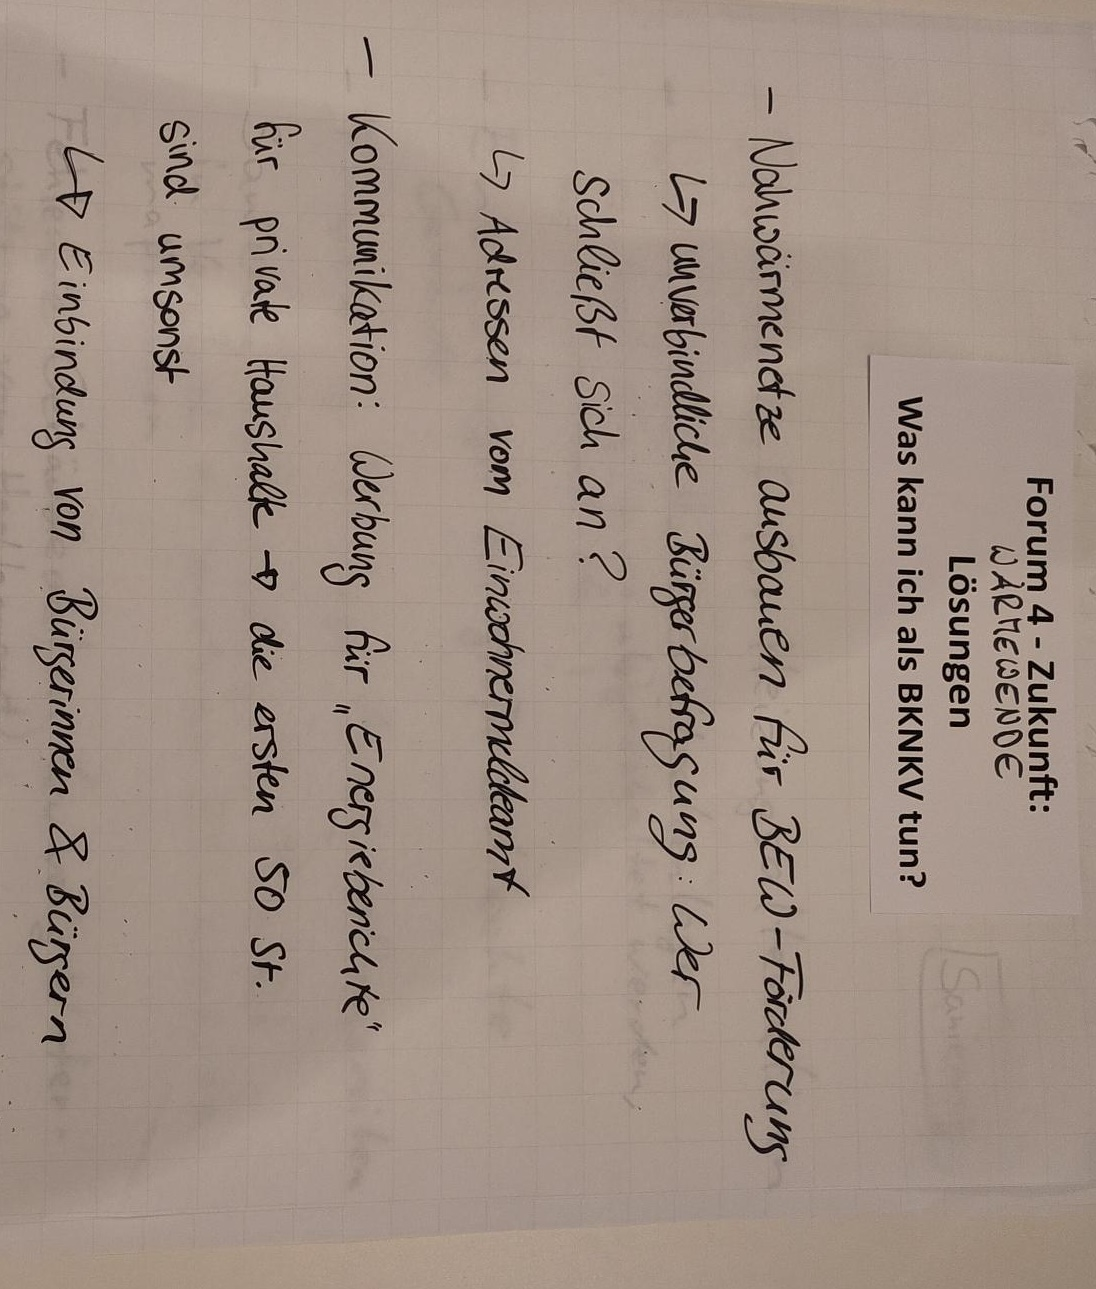 Forum 4 - Zukunft:
WÄRMEWENDE
Lösungen
Was kann ich als BKNKV tun?
- Nahwärmenetze ausbauen für BEW-Förderung
↳ unverbindliche Bürgerbefragung: Wer
schließt sich an?
↳ Adressen vom Einwohnermeldeamt
- Kommunikation: Werbung für „Energieberichte"
für private Haushalte → die ersten 50 St.
sind umsonst
↳ Einbindung von Bürgerinnen & Bürgern